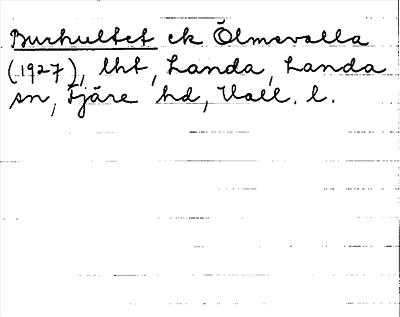 Burhultet ek Ölmevalla
(1927), lht, Landa, Landa
sn, Fjäre hd, Hall. l.